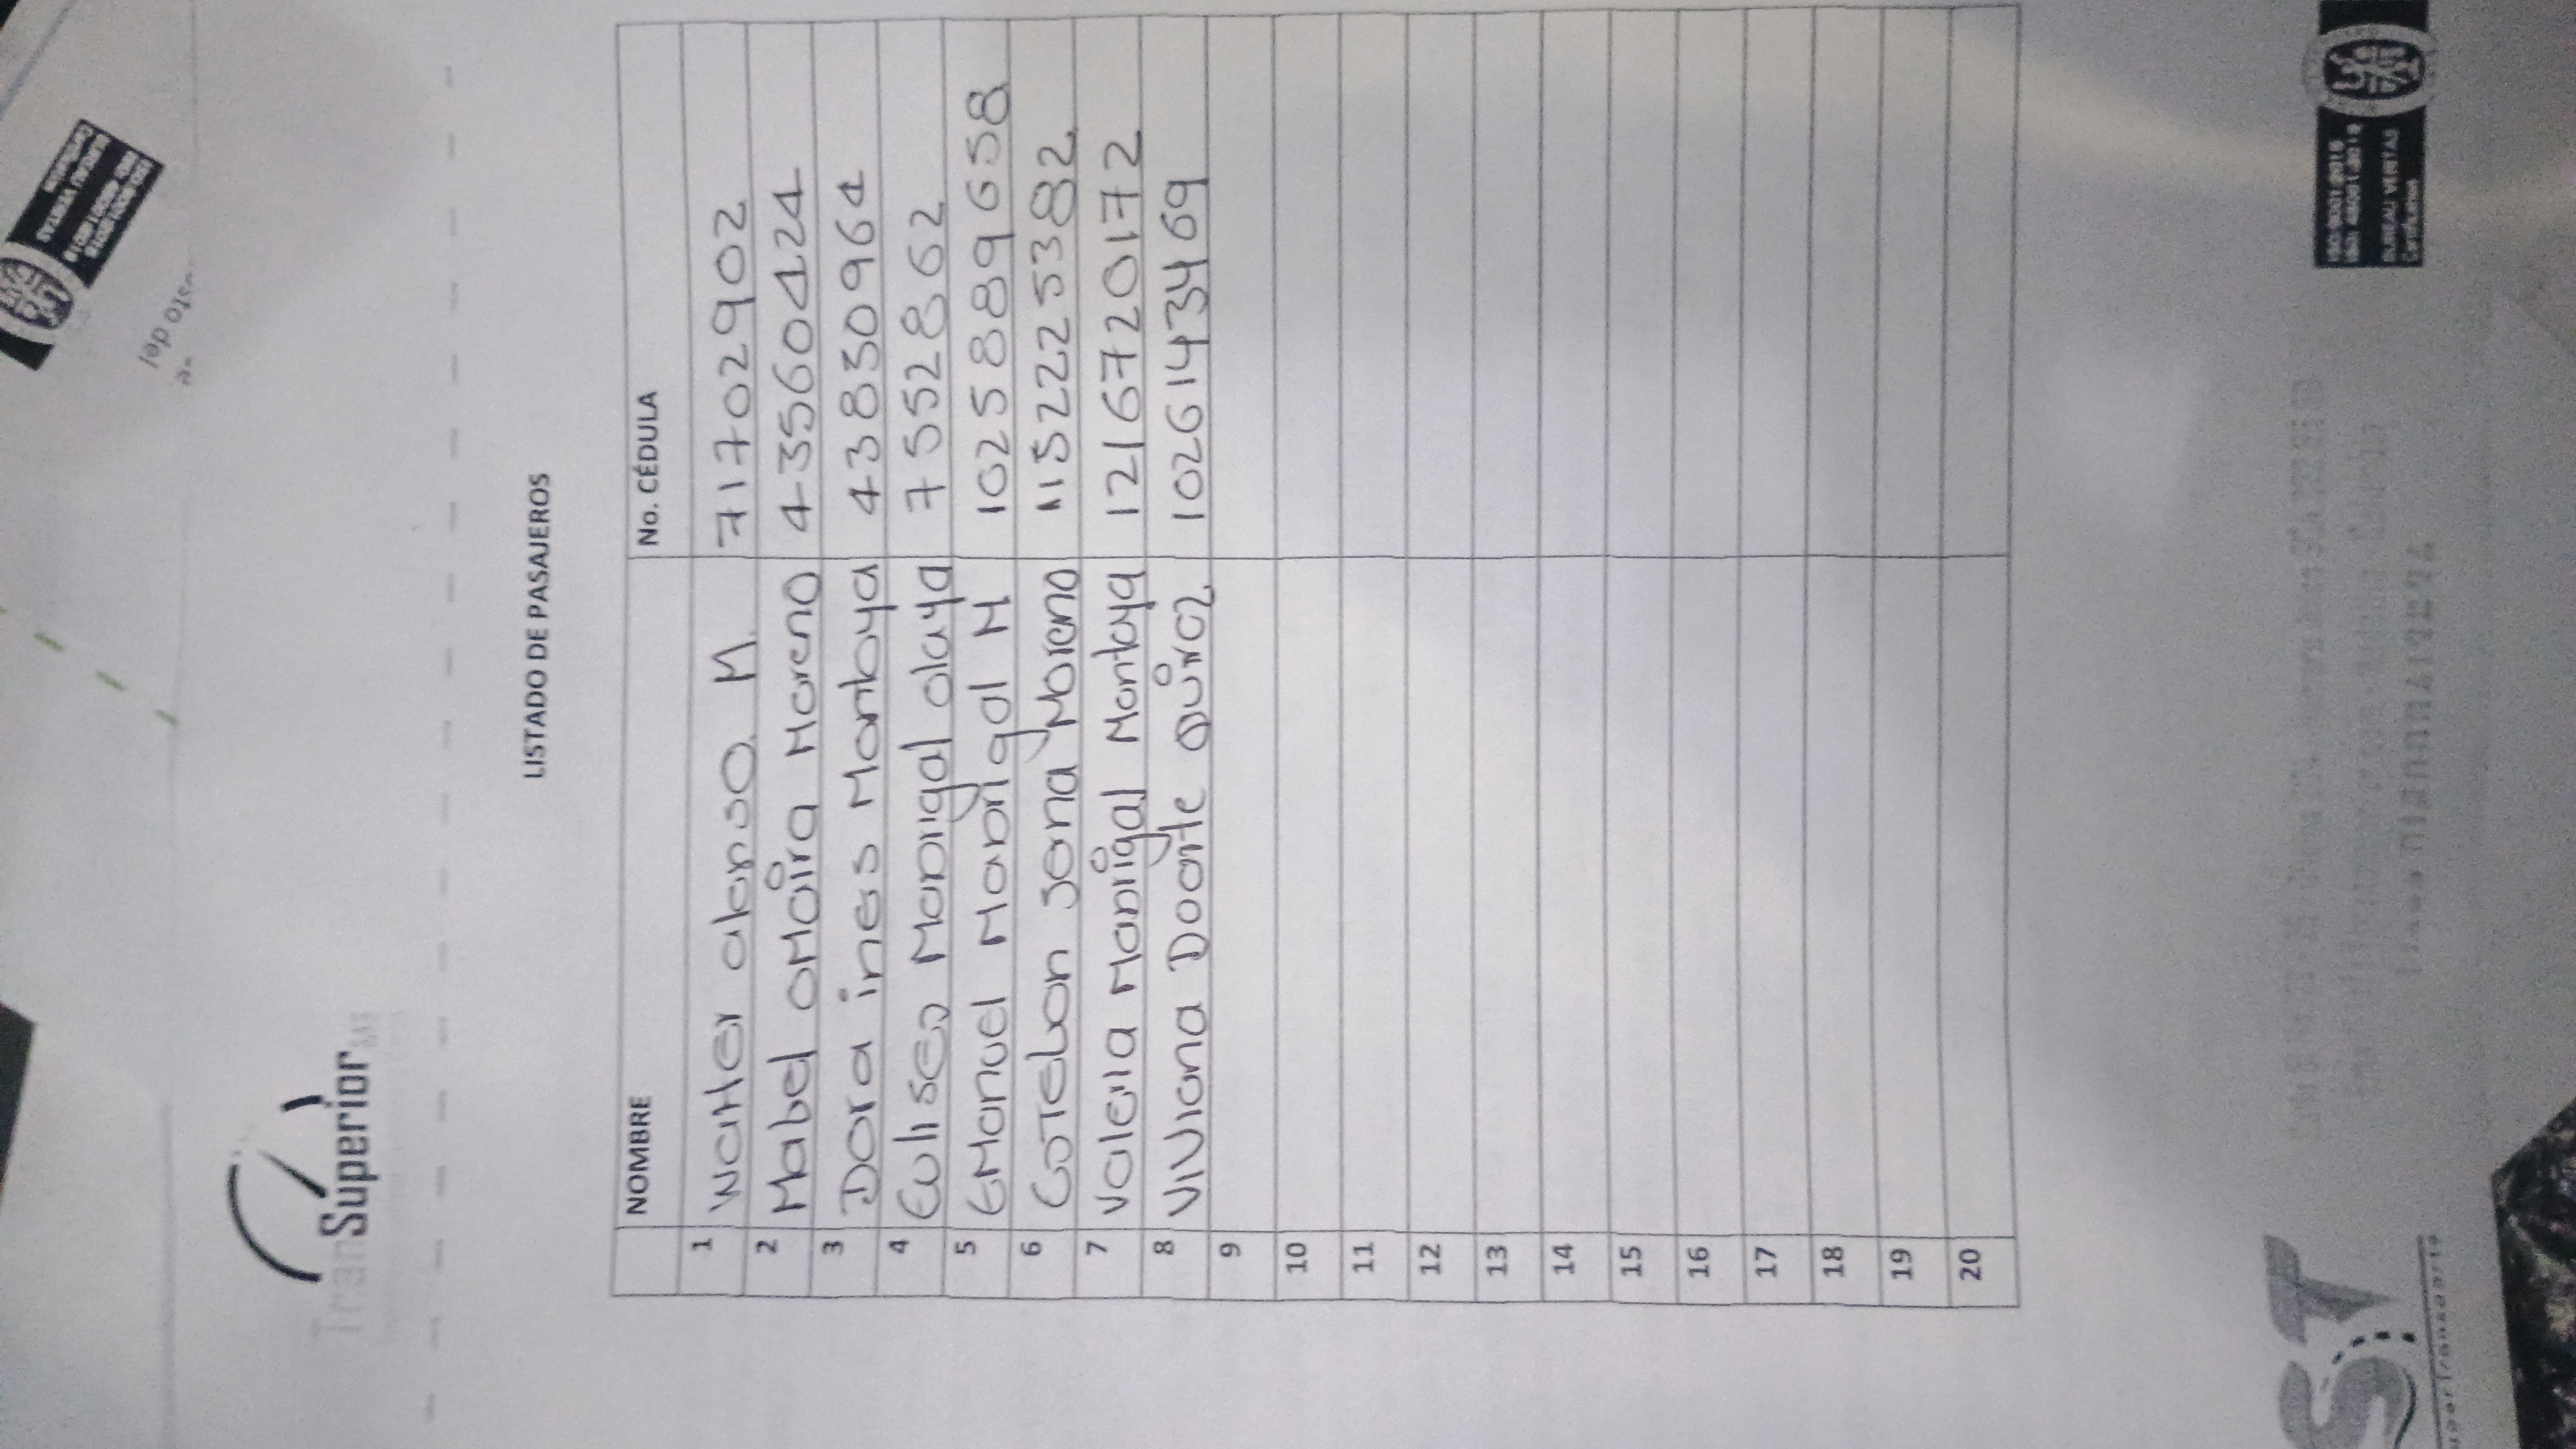 TranSuperior SAS
LISTADO DE PASAJEROS
NOMBRE No. CÉDULA
1 Walter alonso M. 71702902
2 Mabel oMaira Moreno 43560424
3 Dora ines Montoya 43830964
4 Euliseo Manrigal olaya 75528862
5 EManuel Manrigal M 1025889658
6 Moreno 1152225382
7 Valeria Manrigal Montoya 1216720172
8 Viviana Doarte Quiroz 1026143469
9
10
11
12
13
14
15
16
17
18
19
20
ST
ISO 9001:2015
ISO 45001:2018
BUREAU VERITAS
Certification